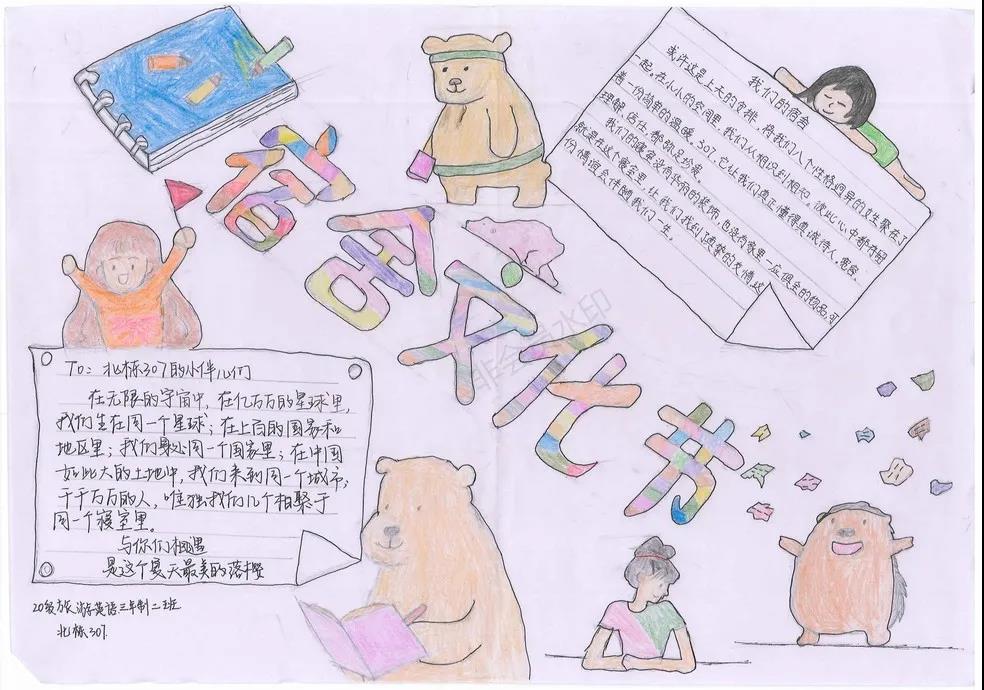 宿舍文化节
我们的宿舍
或许这是上天的安排,将我们八个性格迥异的女生聚在了
一起。在小小的空间里,我们从相识到相知。彼此心中都存留
着一份简单的温暖。307,它让我们真正懂得真诚待人,宽容、
理解、信任,都弥足珍贵。
我们的寝室没有华丽的装饰,也没有家里一应俱全的物品,可
就是在这个寝室里,让我们找到了真挚的友情,这
份情谊会伴随我们一生。
To:北栋307的小伴儿们
在无限的宇宙中,在亿万万的星球里,
我们生在同一个星球;在上百的国家和
地区里,我们身处同一个国家里;在中国
如此大的土地中,我们来到同一个城市,
千千万万的人,唯独我们几个相聚于
同一个寝室里。
与你们相遇
是这个夏天最美的落樱
20级旅游英语三年制二班
北栋307
非会员水印